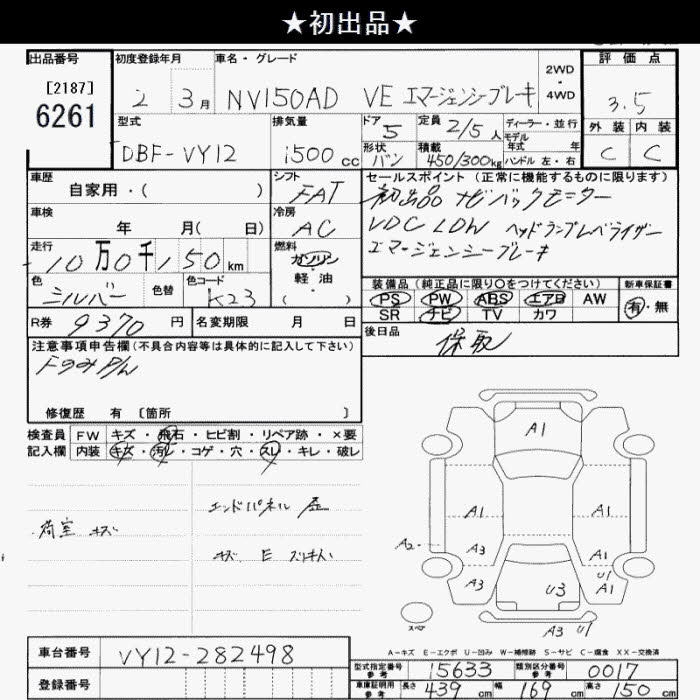 ★初出品★
出品番号 [2187] 6261
初度登録年月 2年 3月
車名・グレード NV150AD VE エマージェンシーブレーキ
2WD・4WD
評価点 3.5
外装 C 内装 C
型式 DBF-VY12
排気量 1500 cc
ドア 5
定員 2/5人
ディーラー・並行
モデル年式 年
形状 バン
積載 450/300kg
ハンドル 左・右
車歴 自家用・( )
シフト FAT
車検 年 月( 日)
冷房 AC
走行 10万0千150km
燃料 ガソリン・軽油・( )
色 シルバー
色替
色コード K23
R券 9370円
名変期限 月 日
セールスポイント (正常に機能するものに限ります)
初出品 ナビ バックモニター
VDC LDW ヘッドランプレベライザー
エマージェンシーブレーキ
装備品 (純正品に限り○をつけてください)
PS PW ABS エアB AW
SR ナビ TV カワ
新車保証書 有・無
後日品 保取
注意事項申告欄 (不具合内容等は具体的に記入して下さい)
FのみP/W
修復歴 有 〔箇所 〕
検査員記入欄
FW キズ・飛石・ヒビ割・リペア跡・×要
内装 キズ・汚レ・コゲ・穴・スレ・キレ・破レ
荷室 キズ
エンドパネル
キズ E
A1
A1 A1
A2 A3 A1
A3 U3 U1 A1
スペア
A3 U1
A-キズ E-エクボ U-凹み W-補修跡 S-サビ C-腐食 XX-交換済
車台番号 VY12-282498
登録番号
型式指定番号 参考 15633
類別区分番号 参考 0017
車庫証明用 参考 長さ 439cm 幅 169cm 高さ 150cm